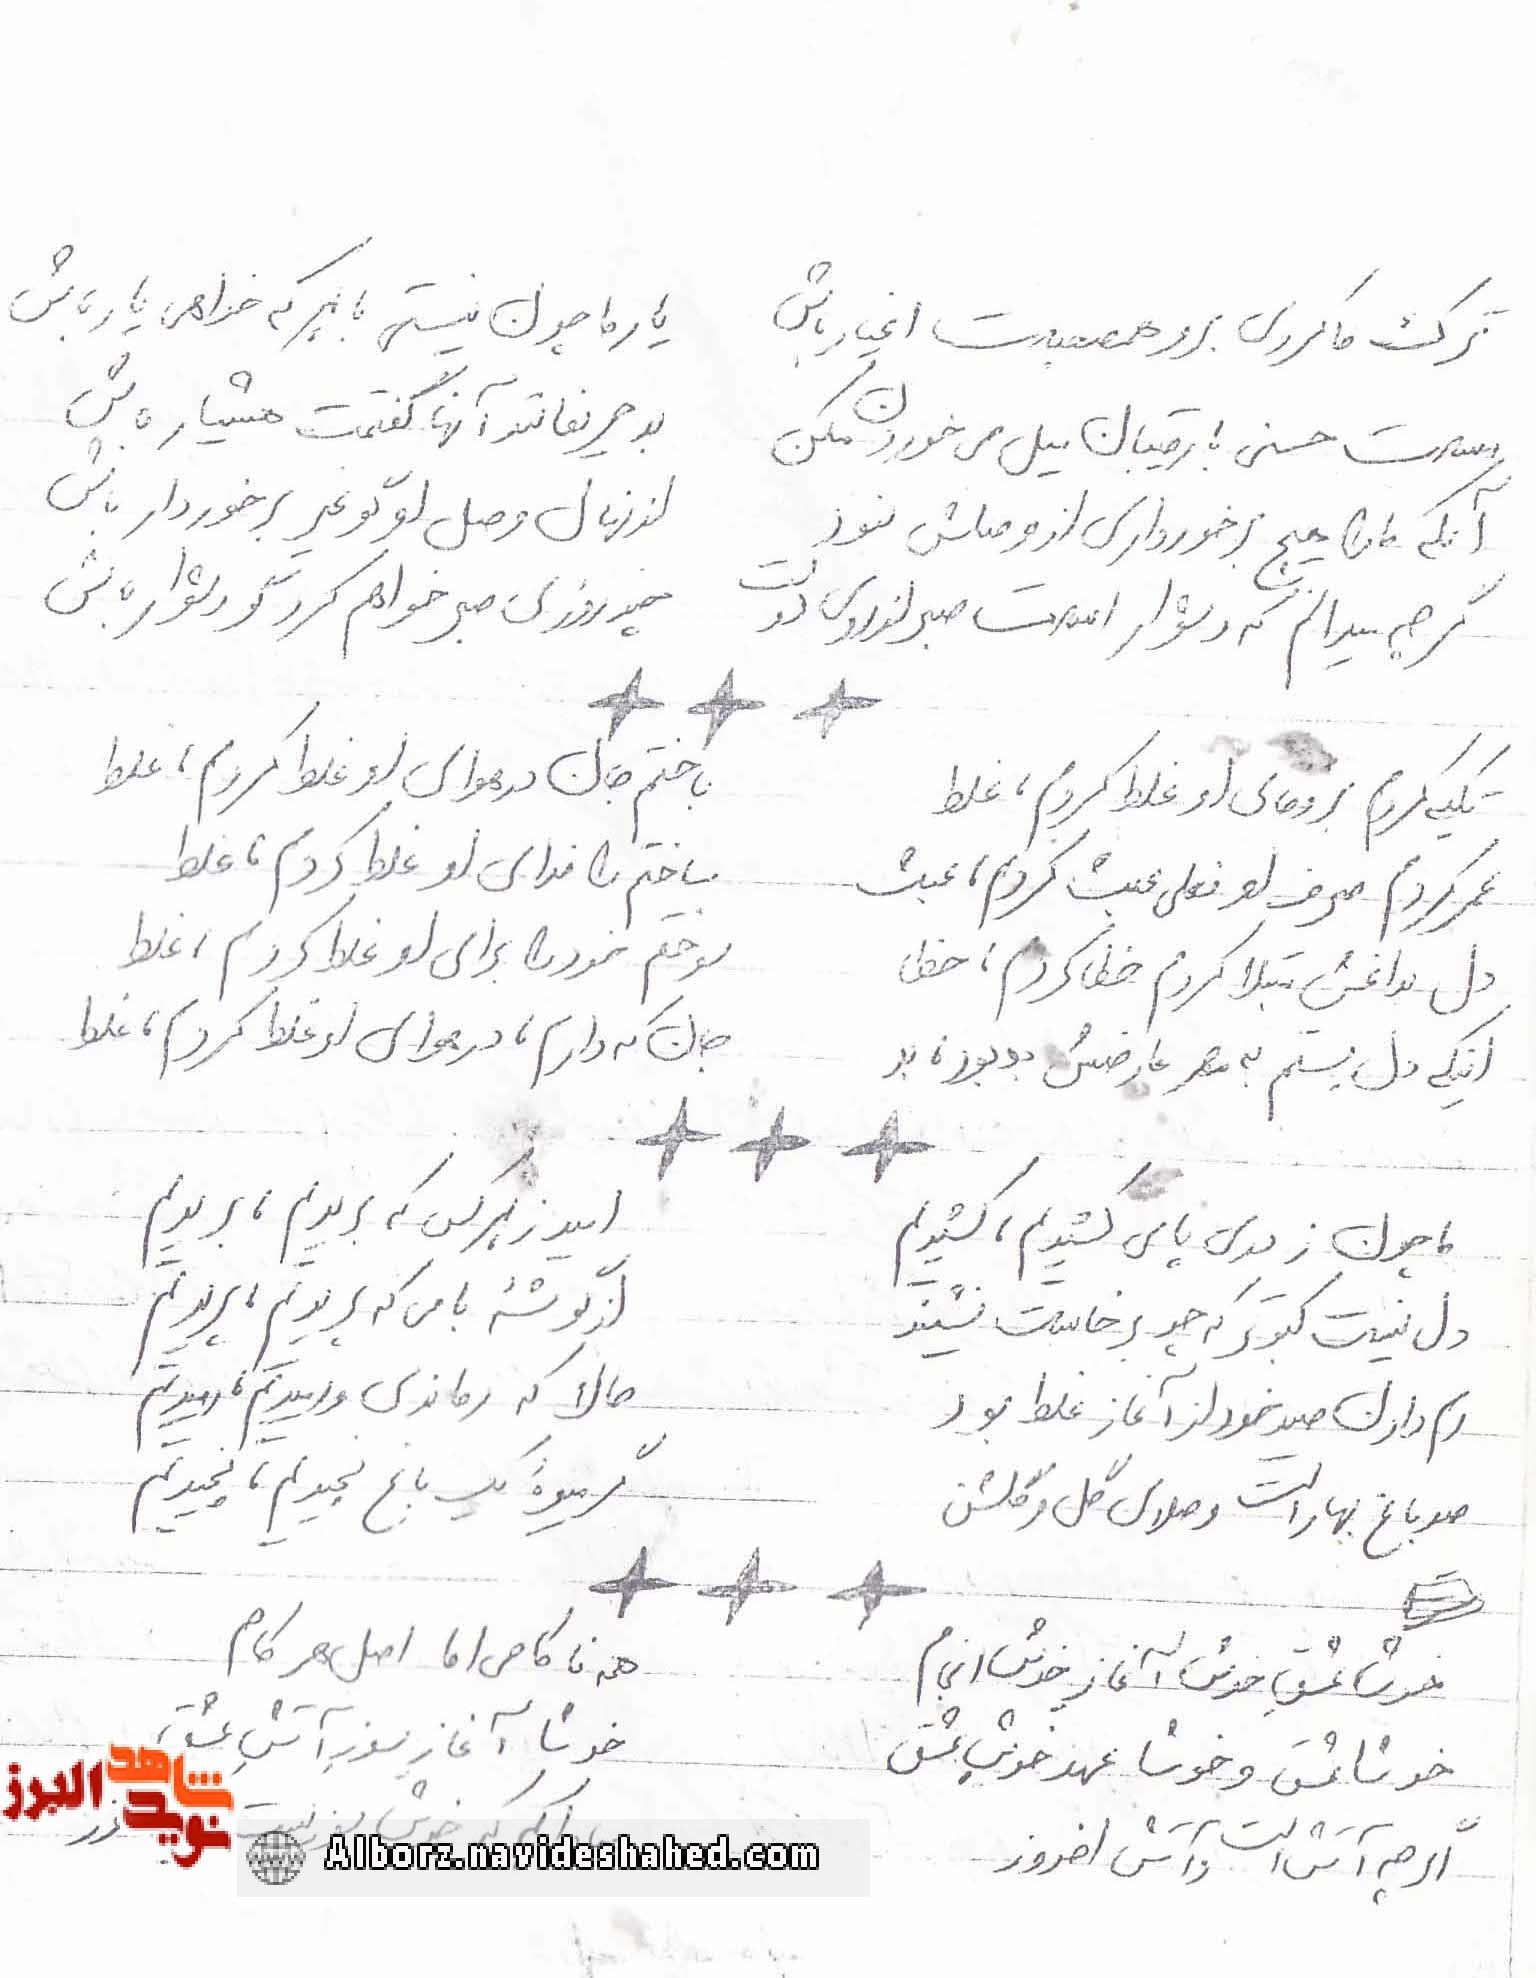 ترک ما کردی برو همصحبت اغیار باش    یار ما چون نیستی با هر که خواهی یار باش
مست حسنی با رقیبان میل می خوردن مکن    بد حریفانند آنها گفتمت هشیار باش
آنکه ما را هیچ برخورداری از وصلش نبود    از نهال وصل او گو غیر برخوردار باش
گرچه میدانم که دشوار است صبر از روی دوست    چند روزی صبر خواهم کرد گو دشوار باش
تکیه کردم بر وفای او غلط کردم، غلط    باختم جان در هوای او غلط کردم، غلط
عمر کردم صرف او فعلی عبث کردم، عبث    ساختم را فدای او غلط کردم، غلط
دل بداغش مبتلا کردم خطا کردم، خطا    سوختم خود را برای او غلط کردم، غلط
اینکه دل بستم به مهر عارضش بد بود، بد    جان که دارم، در هوای او غلط کردم، غلط
ما چون ز دری پای کشیدیم، کشیدیم    امید ز هر کس که بریدیم، بریدیم
دل نیست کبوتر که چو برخاست نشیند    از گوشهٔ بامی که پریدیم، پریدیم
رم دادن صید خود از آغاز غلط بود    حالا که رماندی و رمیدیم، رمیدیم
صد باغ بهار است و صلای گل و گلشن    گر میوهٔ یک باغ نچیدیم، نچیدیم
خوشا عشق خوش آغاز خوش انجام    همه ناکامی اما اصل هر کام
خوشا عشق و خوشا عهد خوش عشق    خوشا آغاز سوز آتش عشق
اگر چه آتش است و آتش افروز
شاهد
نوید
البرز
Alborz.navideshahed.com